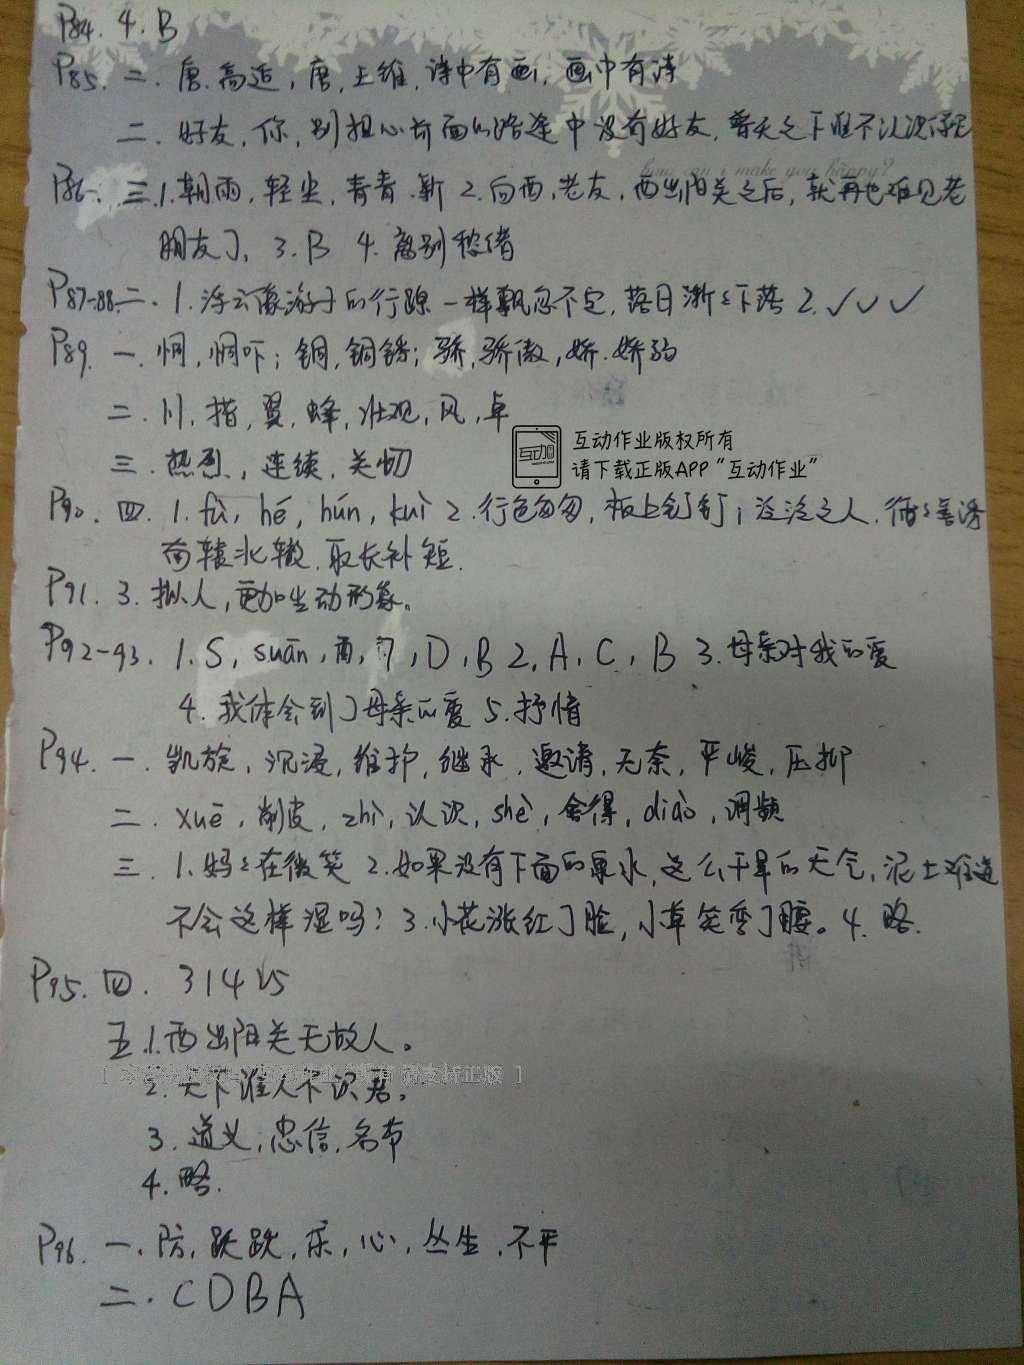 P84. 4. B
P85. 二. 唐, 高适, 唐, 王维, 诗中有画, 画中有诗
二. 好友, 你, 别担心前面的路途中没有好友, 普天之下谁不认识你呢
P86. 三. 1. 朝雨, 轻尘, 青青, 新 2. 向西, 老友, 西出阳关之后, 就再也难见老
朋友了, 3. B 4. 离别愁绪
P87-88. 二. 1. 浮云像游子的行踪一样飘忽不定, 落日渐渐下落 2. ✓✓✓
P89. 一. 恫, 恫吓; 铜, 铜锈; 骄, 骄傲, 娇, 娇的
二. 川, 指, 翼, 蜂, 壮观, 风, 卓
三. 热烈, 连续, 关切
互动作业版权所有
请下载正版APP“互动作业”
P90. 四. 1. fù, hé, hún, kuì 2. 行色匆匆, 板上钉钉, 泛泛之人, 循循善诱
南辕北辙, 取长补短.
P91. 3. 拟人, 更加生动形象。
P92-93. 1. S, suān, 酉, 7, D, B 2. A, C, B 3. 母亲对我的爱
4. 我体会到了母亲的爱 5. 抒情
P94. 一. 凯旋, 沉浸, 维护, 继承, 邀请, 无奈, 严峻, 压抑
二. xuē, 削皮, zhì, 认识, shě, 舍得, diào, 调频
三. 1. 妈妈在微笑 2. 如果没有下面的泉水, 这么干旱的天气, 泥土难道
不会这样湿吗? 3. 小花涨红了脸, 小草笑弯了腰。4. 略.
P95. 四. 31425
五. 1. 西出阳关无故人。
请支持正版 ]
2. 天下谁人不识君。
3. 道义, 忠信, 名节
4. 略.
P96. 一. 防, 跃跃, 乐, 心, 丛生, 不平
二. CDBA